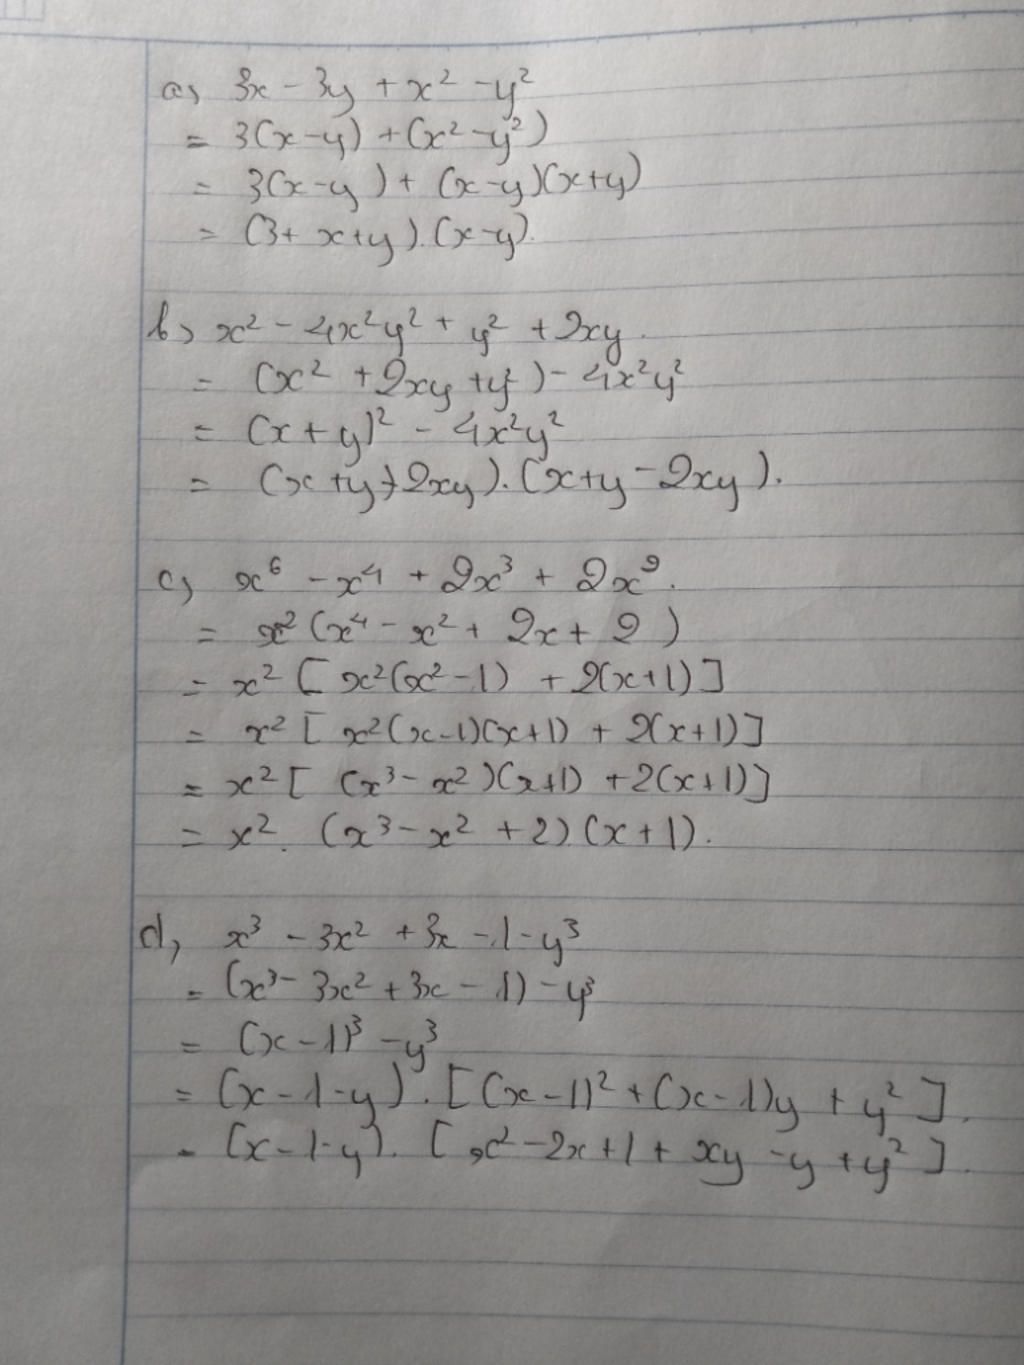 a, 3x - 3y + x² - y²
= 3(x-y) + (x² - y²)
= 3(x-y) + (x-y)(x+y)
= (3+ x+y).(x-y).
b, x² - 4x²y² + y² + 2xy.
= (x² + 2xy + y²) - 4x²y²
= (x+y)² - 4x²y²
= (x+y+2xy).(x+y-2xy).
c, x⁶ - x⁴ + 2x³ + 2x².
= x²(x⁴ - x² + 2x + 2)
= x² [ x²(x²-1) + 2(x+1)]
= x² [ x²(x-1)(x+1) + 2(x+1)]
= x² [ (x³- x²)(x+1) + 2(x+1)]
= x². (x³- x² + 2).(x+1).
d, x³ - 3x² + 3x - 1 - y³
= (x³- 3x² + 3x - 1) - y³
= (x-1)³ - y³
= (x-1-y).[(x-1)² + (x-1)y + y²].
= (x-1-y). [x² - 2x + 1 + xy - y + y²].